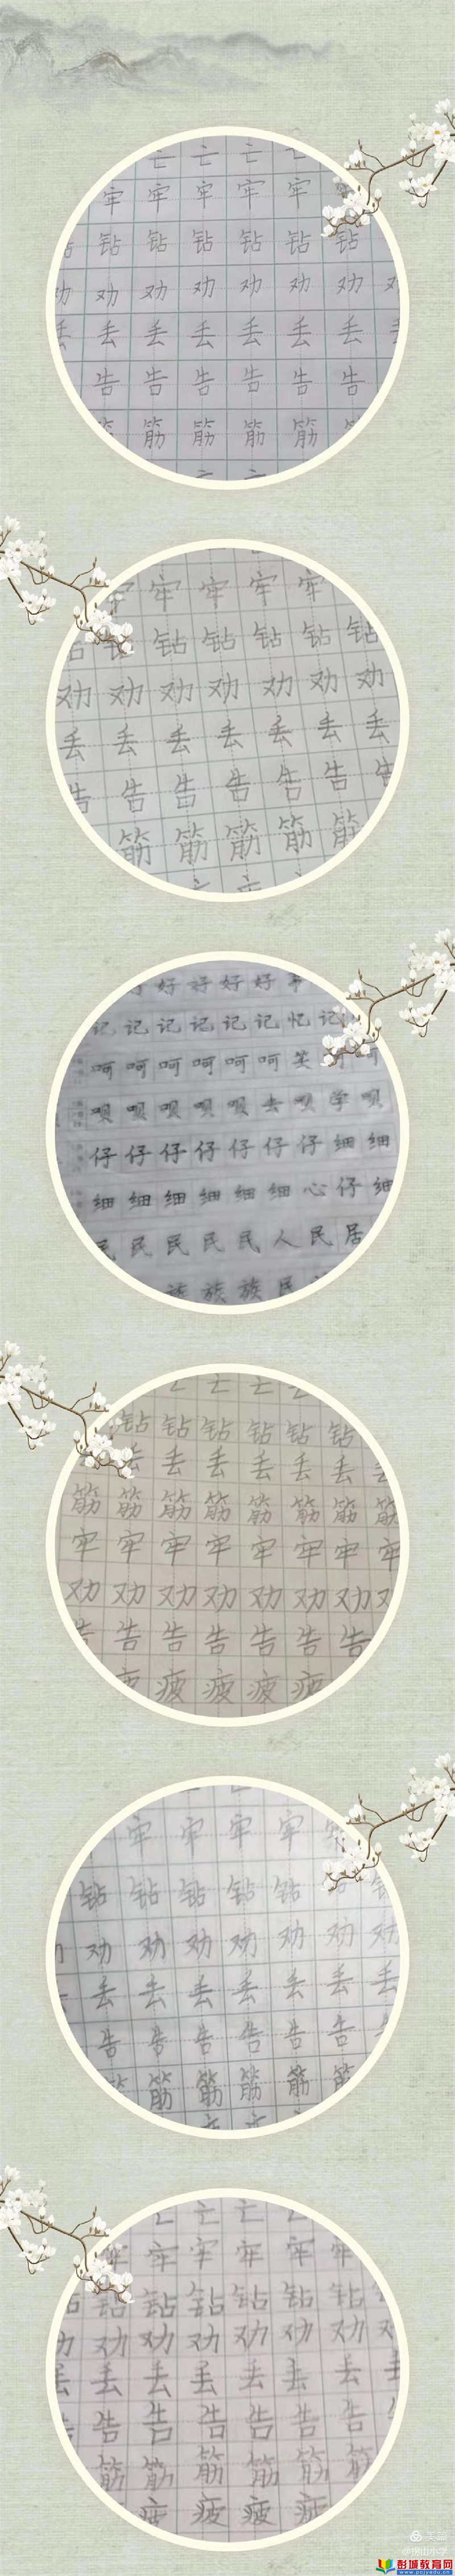 亡 亡 亡 亡
牢 牢 牢 牢 牢
钻 钻 钻 钻 钻 钻 钻
劝 劝 劝 劝 劝 劝 劝 劝
丢 丢 丢 丢 丢 丢 丢 丢
告 告 告 告 告 告
筋 筋 筋 筋
牢 牢 牢 牢 牢
钻 钻 钻 钻 钻 钻
劝 劝 劝 劝 劝 劝 劝
丢 丢 丢 丢 丢 丢 丢
告 告 告 告 告 告 告
筋 筋 筋 筋 筋
好 好 好 好
记 记 记 记 记 记 忆 记
呵 呵 呵 呵 呵 呵 笑 呵 呵
呗 呗 呗 呗 呗 去 呗 学 呗
仔 仔 仔 仔 仔 仔 仔 细 细
细 细 细 细 细 细 心 仔 细
民 民 民 民 民 人 民 居
族 族 族 民
亡 亡 亡 亡
钻 钻 钻 钻 钻 钻
丢 丢 丢 丢 丢 丢 丢
筋 筋 筋 筋 筋 筋 筋 筋
牢 牢 牢 牢 牢 牢 牢 牢
劝 劝 劝 劝 劝 劝 劝
告 告 告 告 告 告 告
疲 疲 疲 疲 疲
牢 牢 牢 牢
钻 钻 钻 钻 钻
劝 劝 劝 劝 劝 劝 劝
丢 丢 丢 丢 丢 丢 丢
告 告 告 告 告 告
筋 筋 筋 筋 筋
亡 亡 亡 亡
牢 牢 牢 牢 牢 牢
钻 钻 钻 钻 钻 钻 钻
劝 劝 劝 劝 劝 劝 劝
丢 丢 丢 丢 丢 丢 丢 丢
告 告 告 告 告 告
筋 筋 筋 筋 筋 筋
疲 疲 疲 疲
美篇
彭城教育网
www.pcjyedu.cn